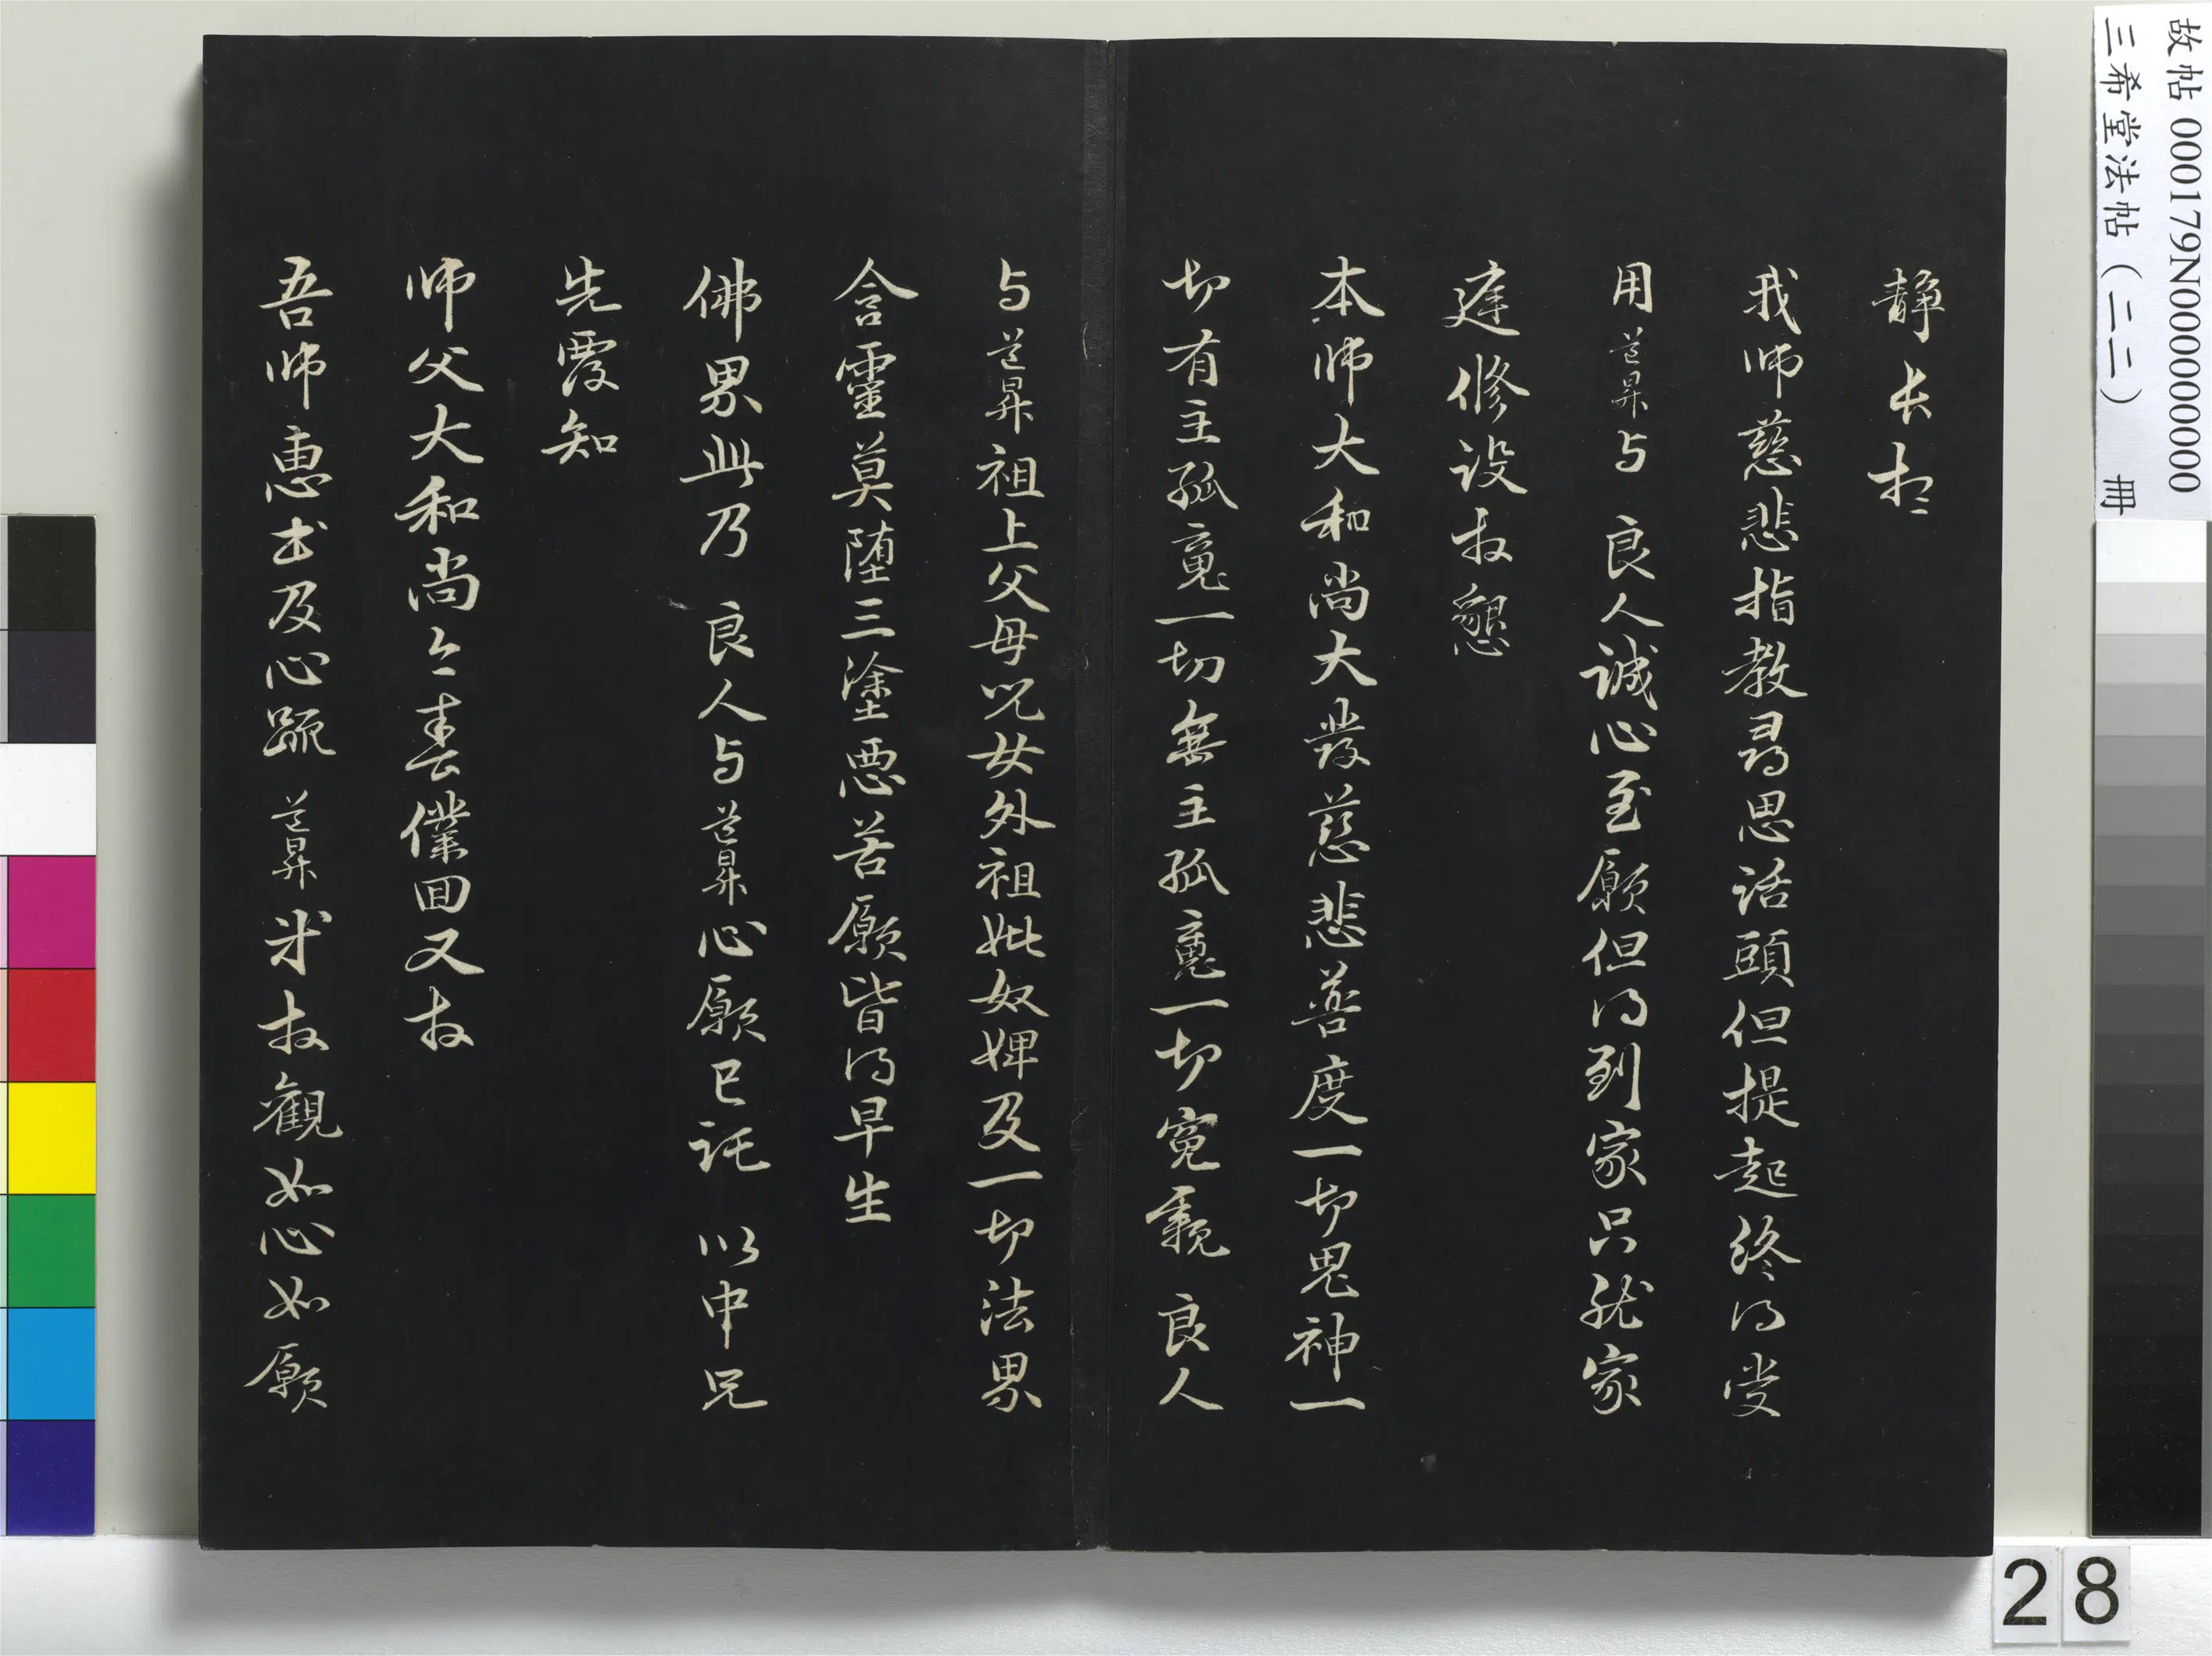 故帖 000179N000000000
三希堂法帖（二二） 冊
靜長
我师慈悲指教尋思話頭但提起終得受
用道昇与 良人誠心至願但得到家只就家
庭修設拜懇
本师大和尚大發慈悲普度一切鬼神一
切有主孤魂一切無主孤魂一切冤親 良人
与道昇祖上父母兒女外祖妣奴婢及一切法界
含靈莫墮三塗惡苦願皆得早生
佛界此乃 良人与道昇心願已託 以中兄
先覆知
师父大和尚今春僕回又拜
吾师惠书及心疏 道昇 拜觀如心如願
28